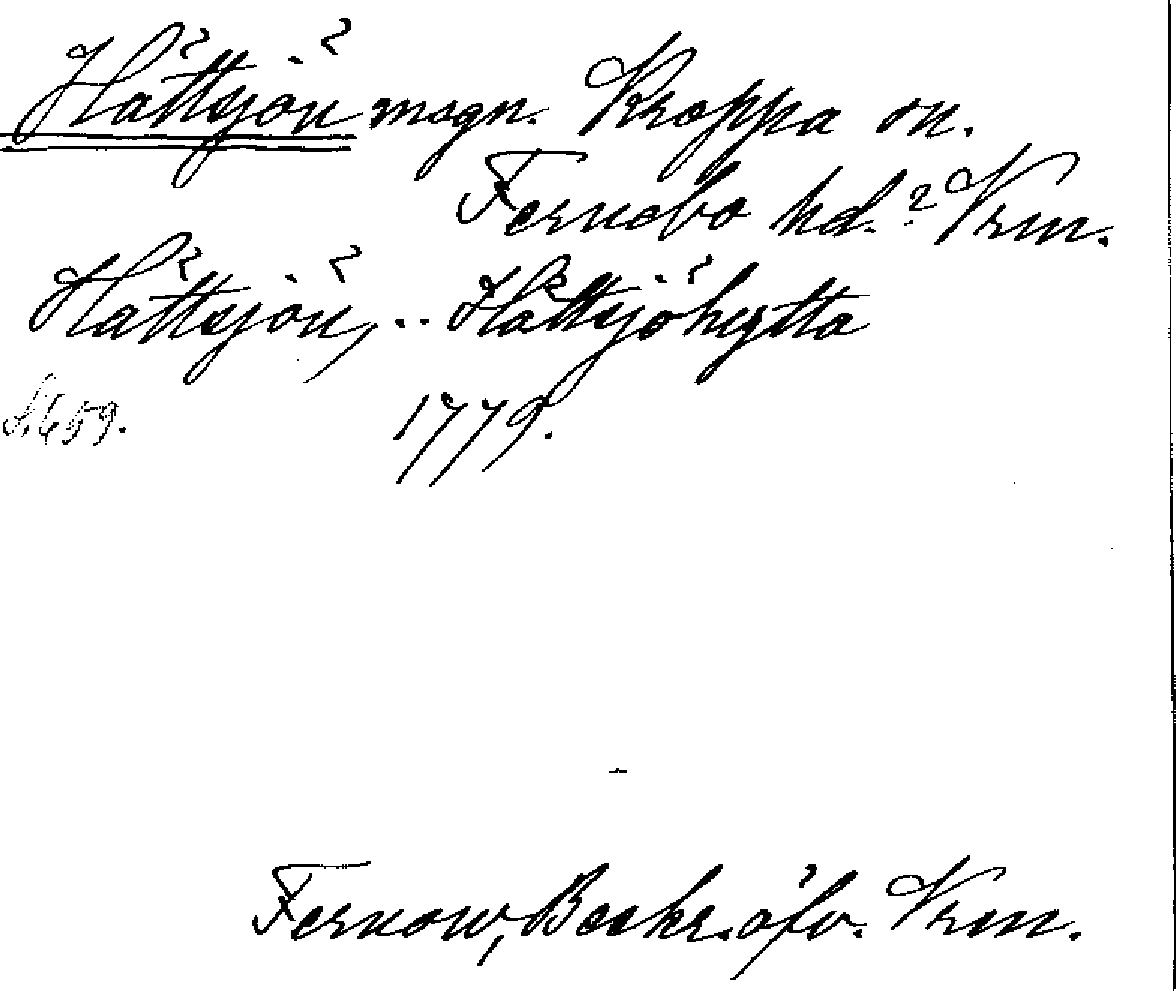 Hättsjön msgn. Kroppa sn.
Fernebo hd.? Vrm.
Hättsjön, .. Hättsjöhytta
S. 659. 1779.
Fernow, Beskr. öfv. Vrm.